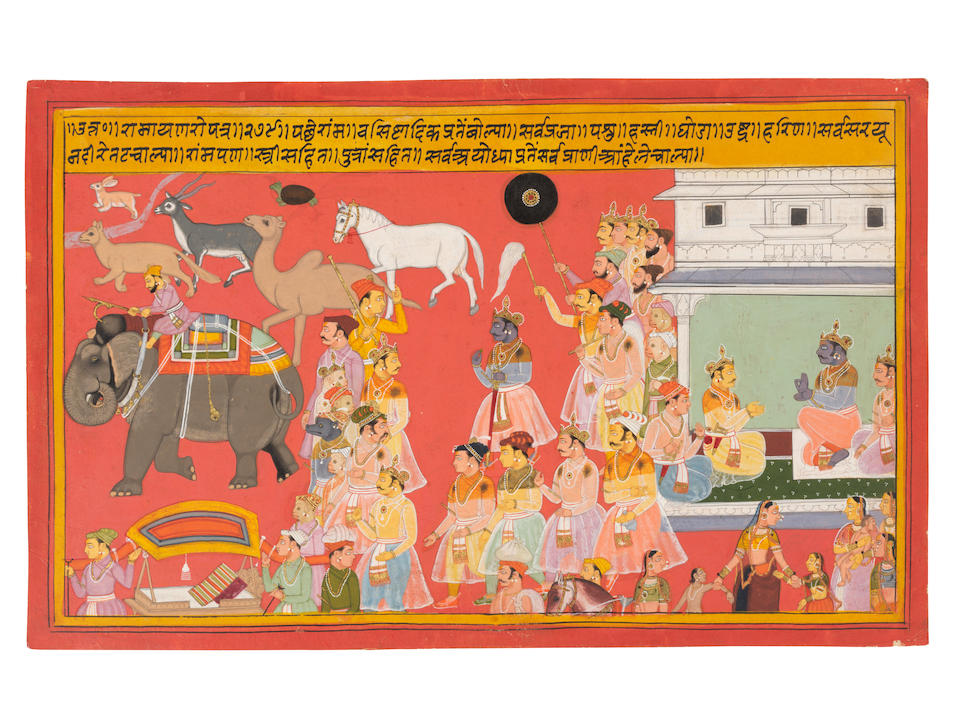 ॥उत्र॰॥रामायणरो पत्र॥२७४॥पछैरांम॥वसिष्टादिक प्रतें बोल्या॥सर्वप्रजा॥पशु॥हस्ती॥घोडा॥उष्ट्र॥हरिण॥सर्वसरयू
नदीरेतटचाल्या॥रांमपण॥स्त्रीसहित॥पुत्रांसहित॥सर्वअयोध्याप्रतें सर्वप्राणी लेचाल्या॥